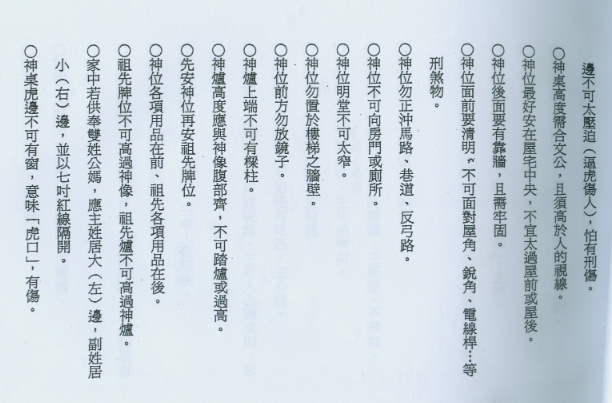 邊不可太壓迫（逼虎傷人），怕有刑傷。
○神桌高度需合文公，且須高於人的視線。
○神位最好安在屋宅中央，不宜太過屋前或屋後。
○神位後面要有靠牆，且需牢固。
○神位面前要清明，不可面對屋角、銳角、電線桿…等
刑煞物。
○神位勿正沖馬路、巷道、反弓路。
○神位不可向房門或廁所。
○神位明堂不可太窄。
○神位勿置於樓梯之牆壁。
○神位前方勿放鏡子。
○神爐上端不可有樑柱。
○神爐高度應與神像腹部齊，不可踏爐或過高。
○先安神位再安祖先牌位。
○神位各項用品在前、祖先各項用品在後。
○祖先牌位不可高過神像，祖先爐不可高過神爐。
○家中若供奉雙姓公媽，應主姓居大（左）邊，副姓居
小（右）邊，並以七吋紅線隔開。
○神桌虎邊不可有窗，意味「虎口」，有傷。